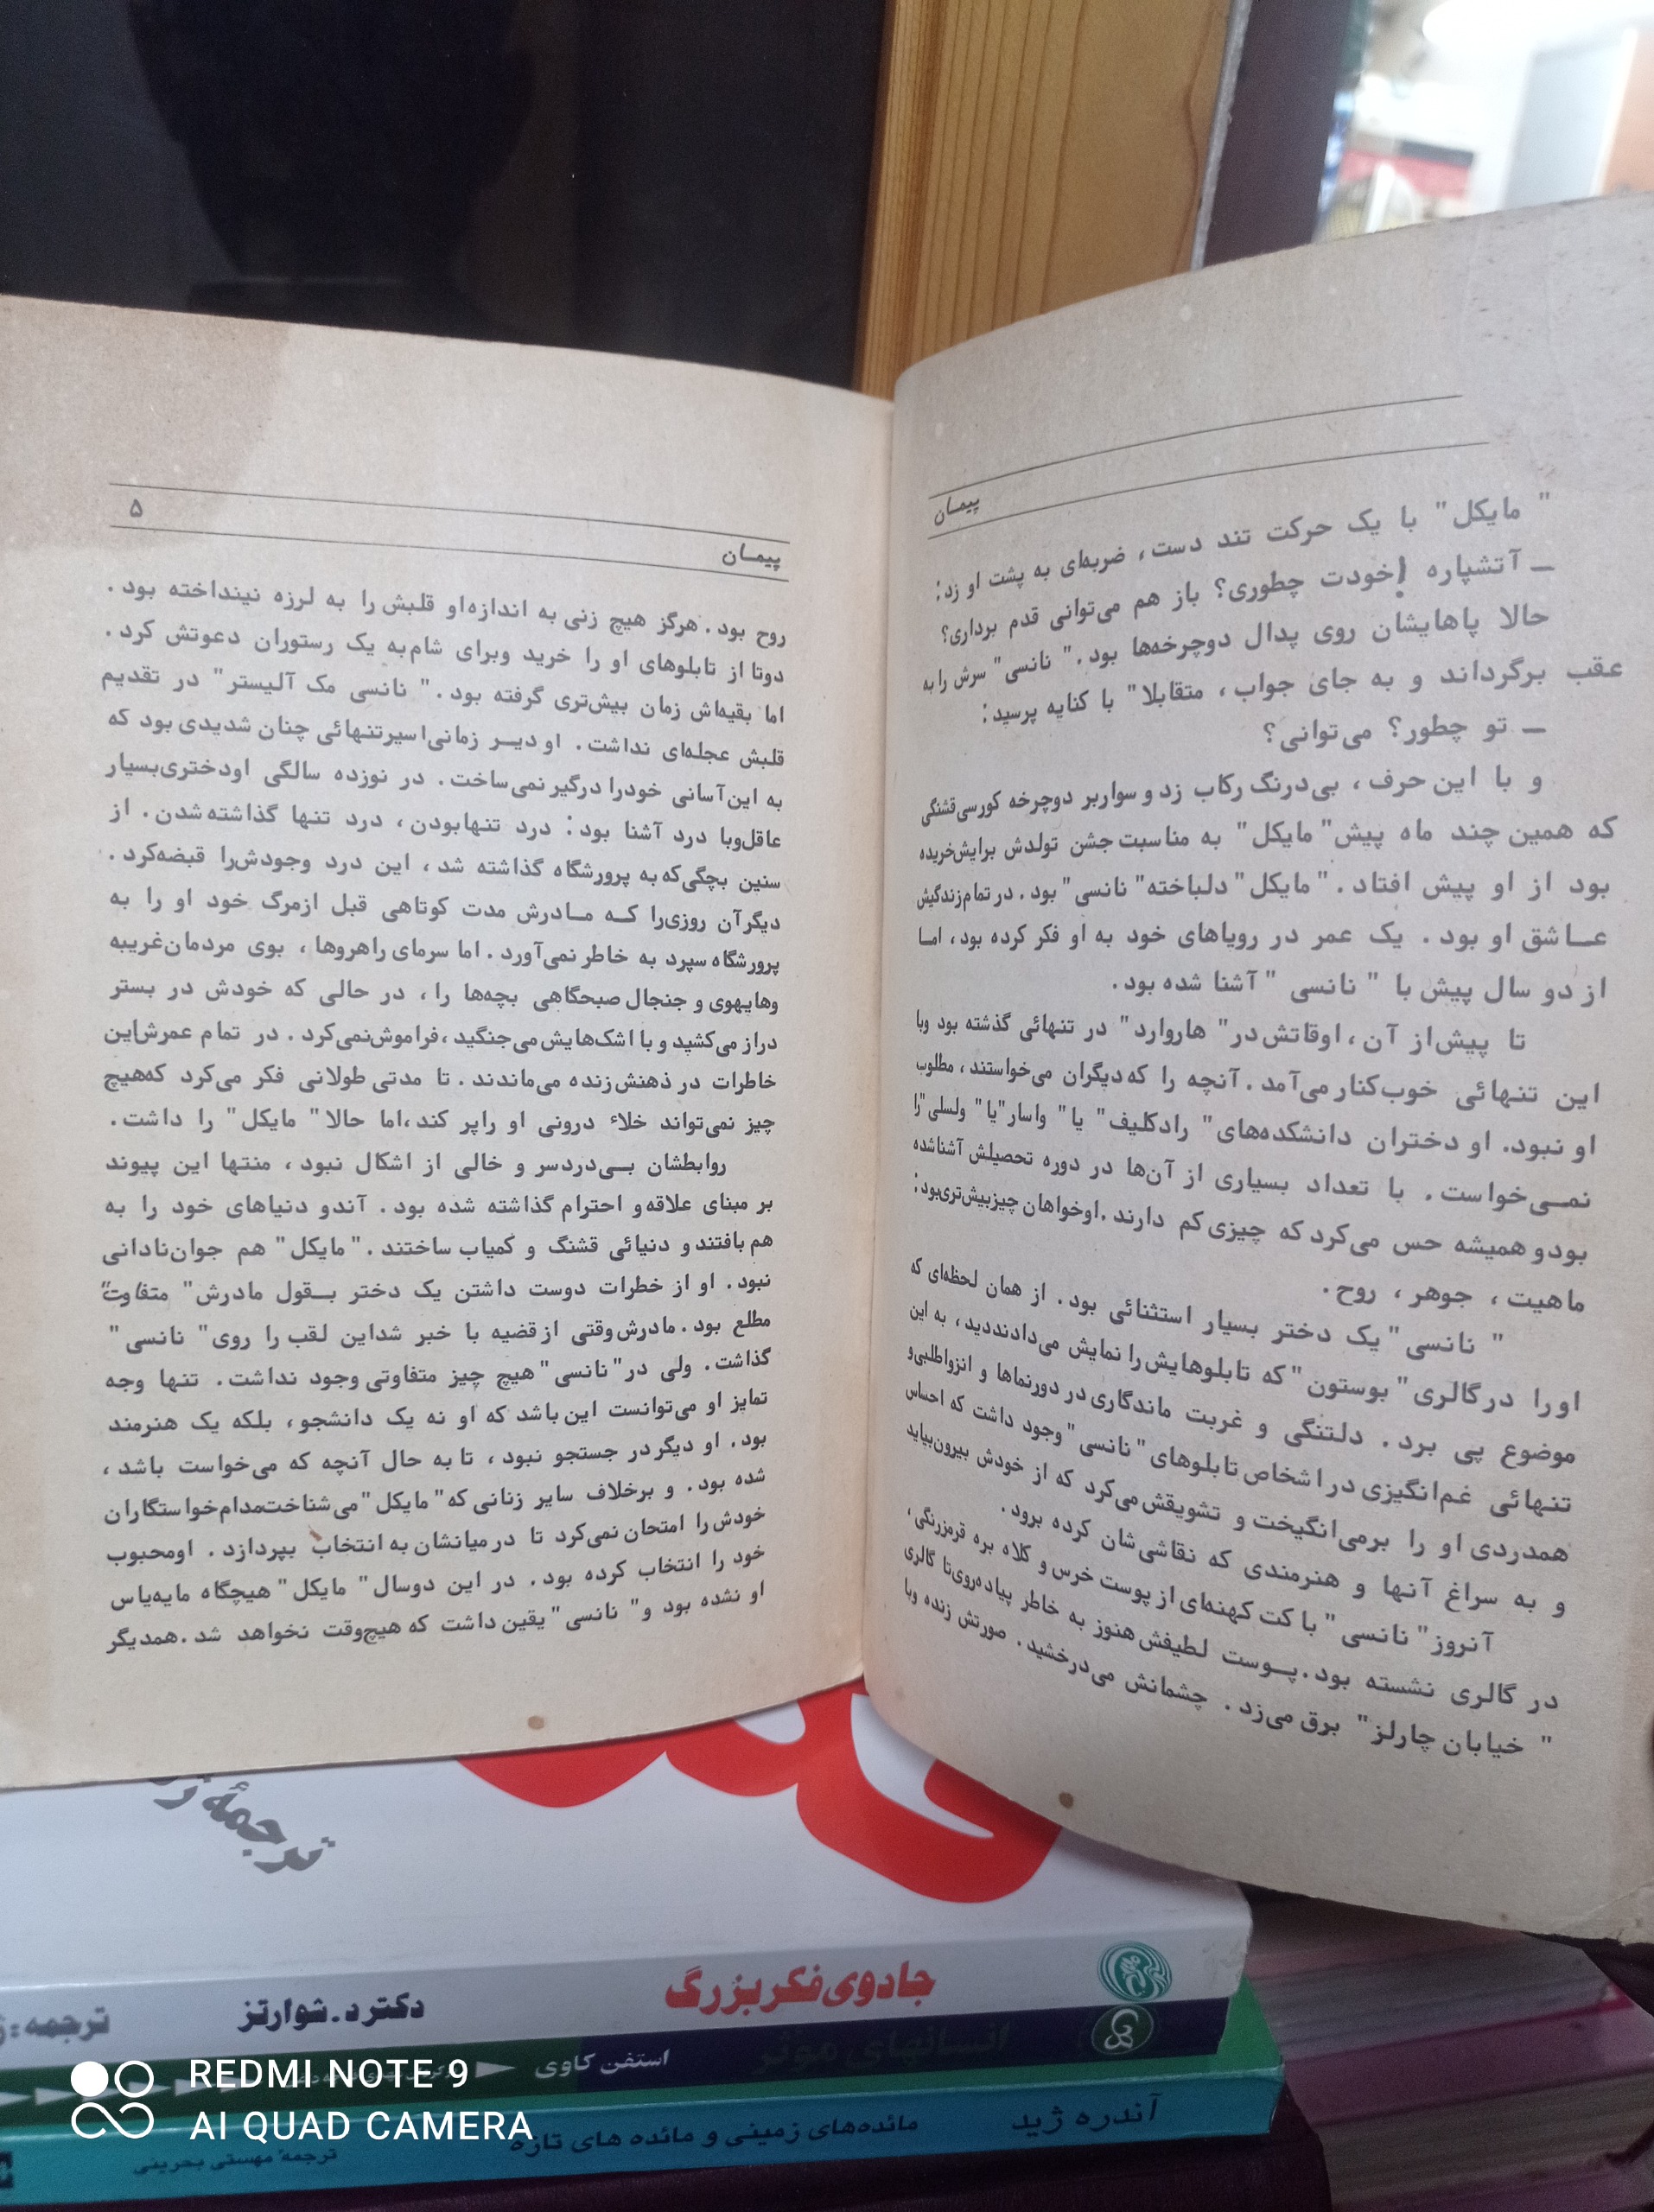 پیمـان
" مایکل" با یک حرکت تند دست، ضربه‌ای به پشت او زد:
ــ آتشپاره !خودت چطوری؟ باز هم می‌توانی قدم برداری؟
حالا پاهایشان روی پدال دوچرخه‌ها بود." نانسی" سرش را به
عقب برگرداند و به جای جواب، متقابلا" با کنایه پرسید:
ــ تو چطور؟ می‌توانی؟
و با این حرف، بی‌درنگ رکاب زد و سواربر دوچرخه کورسی قشنگی
که همین چند ماه پیش" مایکل" به مناسبت جشن تولدش برایش‌خریده
بود از او پیش افتاد." مایکل" دلباخته" نانسی" بود. در تمام زندگیش
عــاشق او بود. یک عمر در رویاهای خود به او فکر کرده بود، امـا
از دو سال پیش با " نانسی " آشنا شده بود.
تا پیش‌از آن، اوقاتش در" هاروارد" در تنهائی گذشته بود وبا
این تنهائی خوب‌کنار می‌آمد. آنچه را که دیگران می‌خواستند، مطلوب
او نبود. او دختران دانشکده‌های" رادکلیف" یا" واسار"یا" ولسلی"را
نمـــی‌خواست. با تعداد بسیاری از آن‌ها در دوره تحصیلش آشناشده
بودو همیشه حس می‌کرد که چیزی کم دارند.اوخواهان چیزبیش‌تری‌بود:
ماهیت، جوهر، روح.
" نانسی" یک دختر بسیار استثنائی بود. از همان لحظه‌ای که
اورا در گالری" بوستون" که تابلوهایش را نمایش می‌دادنددید، به این
موضوع پی برد. دلتنگی و غربت ماندگاری در دورنماها و انزواطلبی‌و
تنهائی غم‌انگیزی در اشخاص تابلوهای" نانسی" وجود داشت که احساس
همدردی او را برمی‌انگیخت و تشویقش می‌کرد که از خودش بیرون‌بیاید
و به سراغ آنها و هنرمندی که نقاشی‌شان کرده برود.
آنروز" نانسی" با کت کهنه‌ای از پوست خرس و کلاه بره قرمزرنگی،
در گالری نشسته بود.پــوست لطیفش هنوز به خاطر پیاده‌روی‌تا گالری
" خیابان چارلز" برق می‌زد. چشمانش می‌درخشید. صورتش زنده وبا
۵
پیمـان
روح بود. هرگز هیچ زنی به اندازه‌او قلبش را به لرزه نینداخته بود.
دوتا از تابلوهای او را خرید وبرای شام‌به یک رستوران دعوتش کرد.
اما بقیه‌اش زمان بیش‌تری گرفته بود." نانسی مک آلیستر" در تقدیم
قلبش عجله‌ای نداشت. او دیــر زمانی‌اسیرتنهائی چنان شدیدی بود که
به این‌آسانی خودرا درگیر نمی‌ساخت. در نوزده سالگی اودختری‌بسیار
عاقل‌وبا درد آشنا بود: درد تنهابودن، درد تنها گذاشته‌شدن. از
سنین بچگی‌که به پرورشگاه گذاشته شد، این درد وجودش‌را قبضه‌کرد.
دیگرآن روزی‌را کــه مــادرش مدت کوتاهی قبل ازمرگ خود او را به
پرورشگاه سپرد به خاطر نمی‌آورد. اما سرمای راهروها، بوی مردمان‌غریبه
وهایهوی و جنجال صبحگاهی بچه‌ها را، در حالی که خودش در بستر
دراز می‌کشید و با اشک‌هایش می‌جنگید،فراموش‌نمی‌کرد. در تمام عمرش‌این
خاطرات در ذهنش زنده می‌ماندند. تا مدتی طولانی فکر می‌کرد که‌هیچ
چیز نمی‌تواند خلاٴ درونی او راپر کند،اما حالا" مایکل" را داشت.
روابطشان بــی‌دردسر و خالی از اشکال نبود، منتها این پیوند
بر مبنای علاقه‌و احترام گذاشته شده بود. آندو دنیاهای خود را به
هم بافتند و دنیائی قشنگ و کمیاب ساختند." مایکل" هم جوان‌نادانی
نبود. او از خطرات دوست داشتن یک دختر بــقول مادرش" متفاوت"
مطلع بود. مادرش‌وقتی از قضیه با خبر شداین لقب را روی" نانسی"
گذاشت. ولی در"نانسی" هیچ چیز متفاوتی وجود نداشت. تنها وجه
تمایز او می‌توانست این‌باشد که او نه یک دانشجو، بلکه یک هنرمند
بود. او دیگر در جستجو نبود، تا به حال آنچه که می‌خواست باشد،
شده بود. و برخلاف سایر زنانی که" مایکل" می‌شناخت‌مدام‌خواستگاران
خودش را امتحان نمی‌کرد تا در میانشان به انتخاب بپردازد. اومحبوب
خود را انتخاب کرده بود. در این دوسال" مایکل" هیچگاه مایه‌یاس
او نشده بود و" نانسی" یقین داشت که هیچ‌وقت نخواهد شد.همدیگر
ترجمهٔ
جادوی فکر بزرگ
دکتر د. شوارتز
ترجمه:
انسانهای موثر
استفن کاوی
آندره ژید
مائده‌های زمینی و مائده های تازه
ترجمهٔ مهستی بحرینی
REDMI NOTE 9
AI QUAD CAMERA